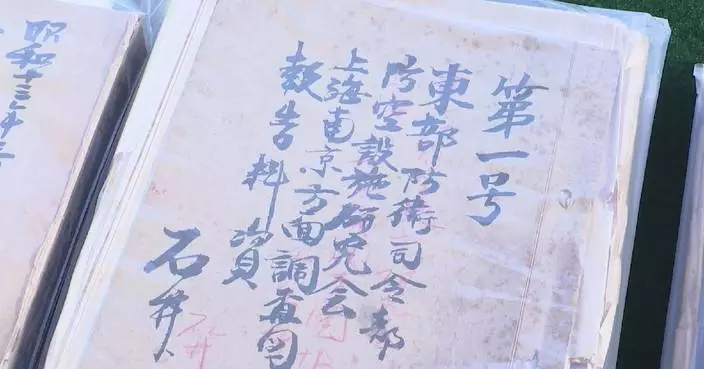 第一号
東部防衛司令部
防空設施研究会
上海南京方面調査団
報告料資
石井
昭和十三年